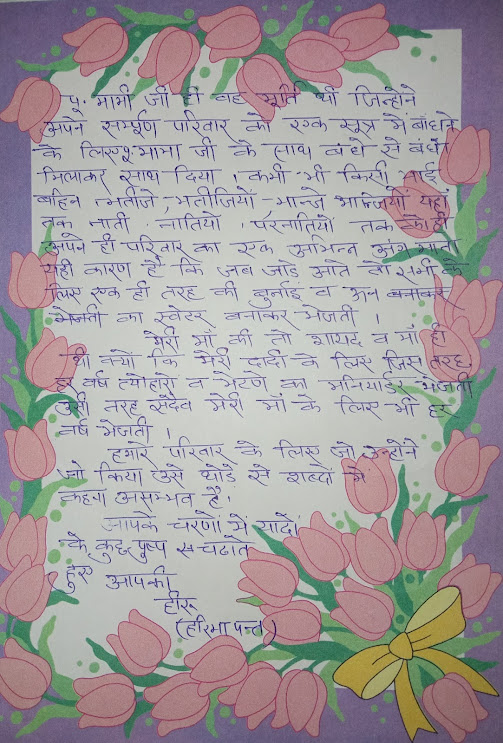 पू. मामी जी ही वह मूर्ति थीं जिन्होने
अपने सर्म्पूण परिवार को एक सूत्र में बांधने
के लिए पू मामा जी के साथ कंधे से कंधा
मिलाकर साथ दिया । कभी भी किसी भाई
बहिन भतीजे, भतीजियों भान्जे भान्जियों यहां
तक नाती नातियों, परनातियों तक को ही
अपने ही परिवार का एक अभिन्न अंग माना
यही कारण है कि जब जाड़े आते तो सभी के
लिए एक ही तरह की बुनाई व ऊन बनाकर
मेहनती का स्वेटर बनाकर भेजती ।
मेरी माँ की तो शायद व माँ ही
थी क्यों कि मेरी दादी के लिए जिस तरह
हर वर्ष त्योहारो व भेटणे का मनिआर्डर भेजती
उसी तरह सदैव मेरी माँ के लिए भी हर
वर्ष भेजती ।
हमारे परिवार के लिए जो उन्होंने
जो किया उसे थोडे से शब्दों में
कहना असम्भव है।
आपके चरणों में यादों
के कुछ पुष्प चढाते
हुए आपकी
हीरू
(हरिमा पन्त)